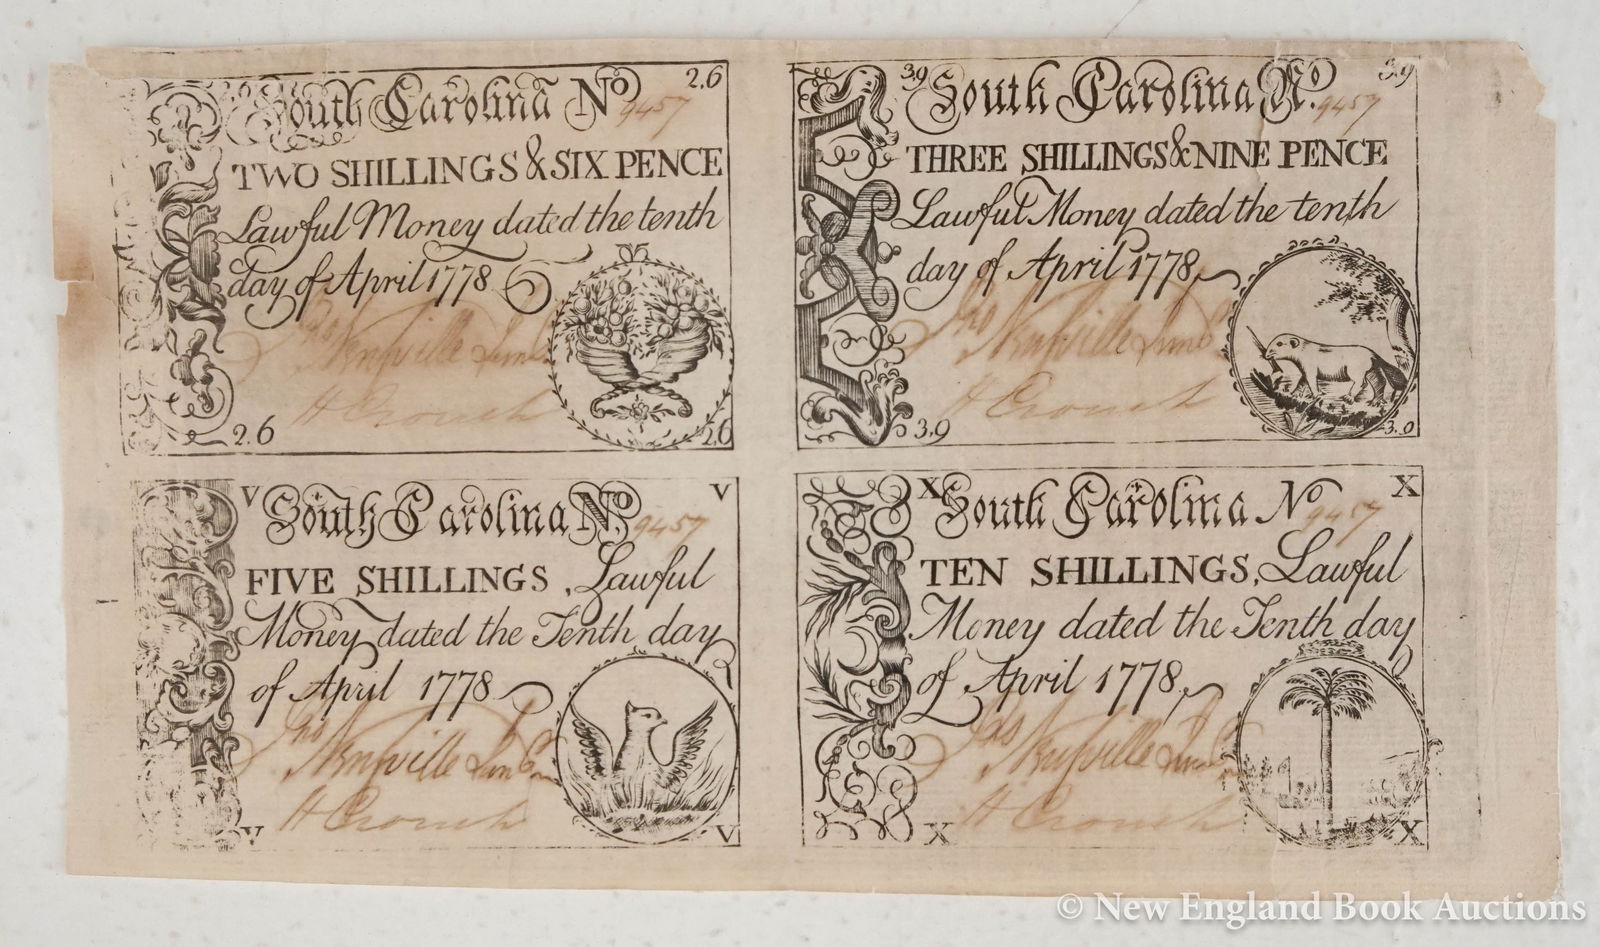 2.6
South Carolina No. 9457
TWO SHILLINGS & SIX PENCE
Lawful Money dated the tenth
day of April 1778
Jno Neufville Junr
H Crouch
2.6
2.6
3,9
3,9
South Carolina, No. 9457
THREE SHILLINGS & NINE PENCE
Lawful Money dated the tenth
day of April 1778,
Jno Neufville Junr
H Crouch
3,9
3.9
V
V
South Carolina No. 9457
FIVE SHILLINGS, Lawful
Money dated the Tenth day
of April 1778
Jno Neufville Junr
H Crouch
V
V
X
X
South Carolina No 9457
TEN SHILLINGS, Lawful
Money dated the Tenth day
of April 1778,
Jno Neufville Junr
H Crouch
X
X
© New England Book Auctions